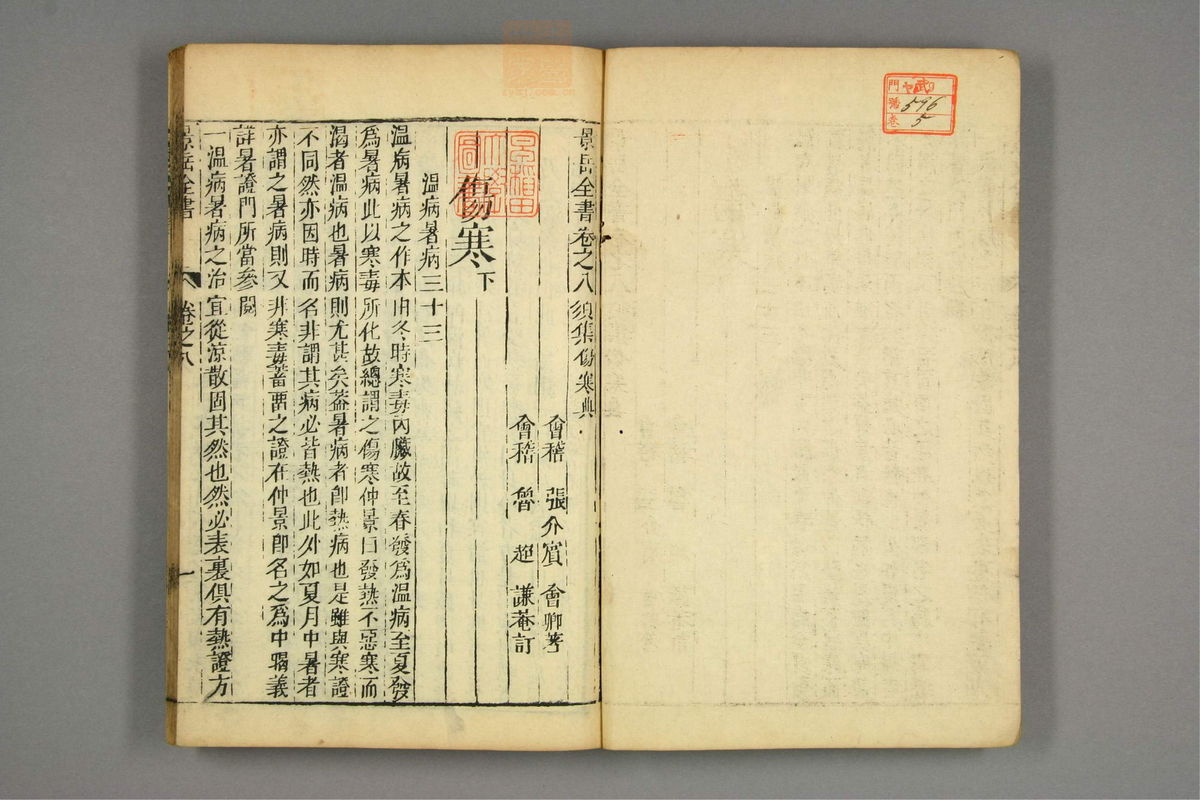 門
號 596
卷 5
景岳全書卷之八 須集傷寒典
會稽 張介賓 會卿著
會稽 魯超 謙菴訂
傷寒下
溫病暑病三十三
溫病暑病之作本由冬時寒毒內臟故至春發爲溫病至夏發
爲暑病此以寒毒所化故總謂之傷寒仲景曰發熱不惡寒而
渴者溫病也暑病則尤甚矣蓋暑病者卽熱病也是雖與寒證
不同然亦因時而名非謂其病必皆熱也此外如夏月中暑者
亦謂之暑病則又非寒毒蓄畱之證在仲景卽名之爲中暍義
詳暑證門所當參閱
一溫病暑病之治宜從涼散固其然也然必表裏俱有熱證方
景岳全書
卷之八
一